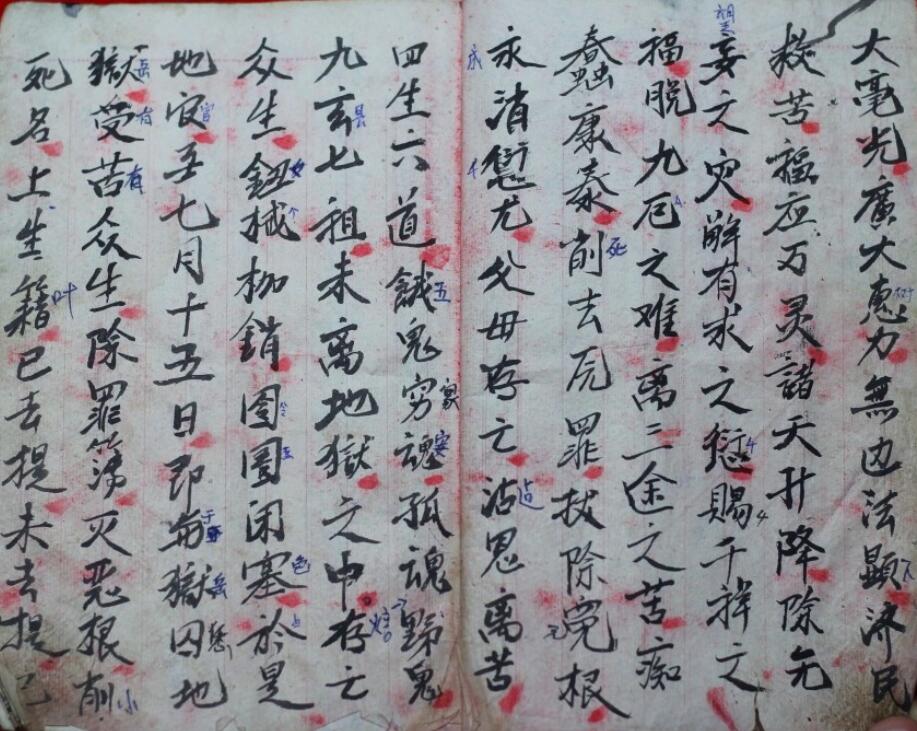 大毫光廣大惠力無边法顕济民
救苦福应万灵諸天升降除无
妄之灾解有求之愆賜千祥之
福脱九厄之难离三途之苦痴
蠢康泰削去厄罪拔除冤根
永消愆尤父母存亡沾恩离苦
四生六道餓鬼穷魂孤魂野鬼
九玄七祖未离地獄之中存亡
众生鈕械枷銷囹圄闭塞於是
地官至七月十五日即與獄囚地
獄受苦众生除罪簿灭恶根削
死名上生籍已去提未去提已